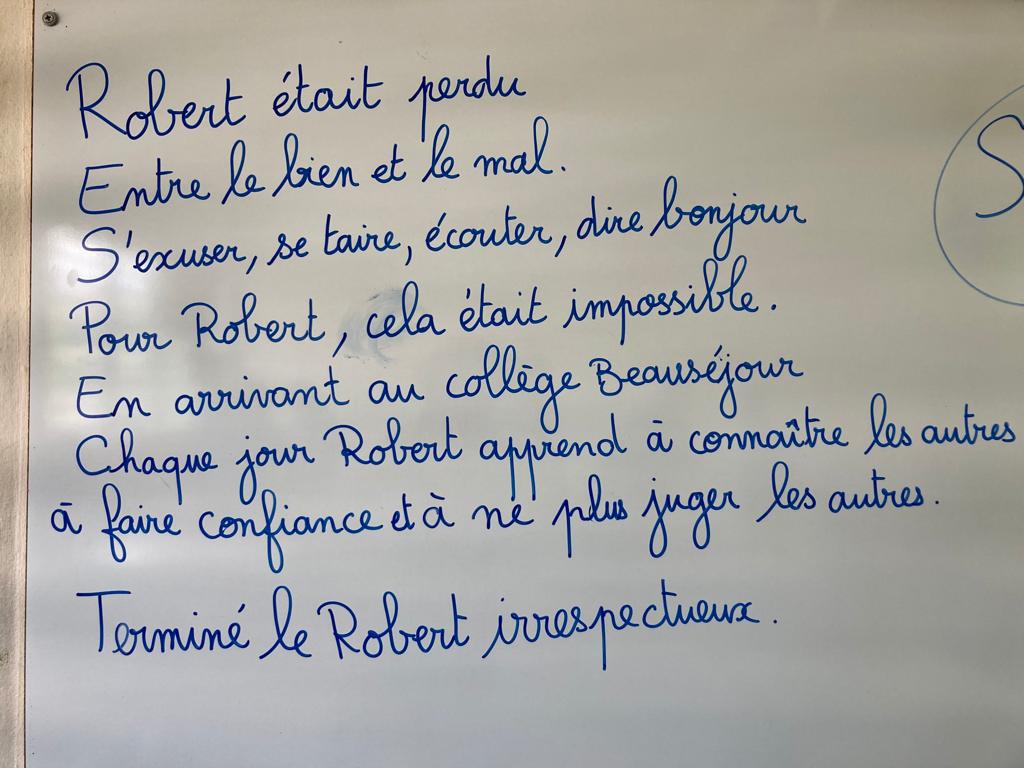 Robert était perdu
Entre le bien et le mal.
S'excuser, se taire, écouter, dire bonjour
Pour Robert, cela était impossible.
En arrivant au collège Beauséjour
Chaque jour Robert apprend à connaître les autres
à faire confiance et à ne plus juger les autres.
Terminé le Robert irrespectueux.